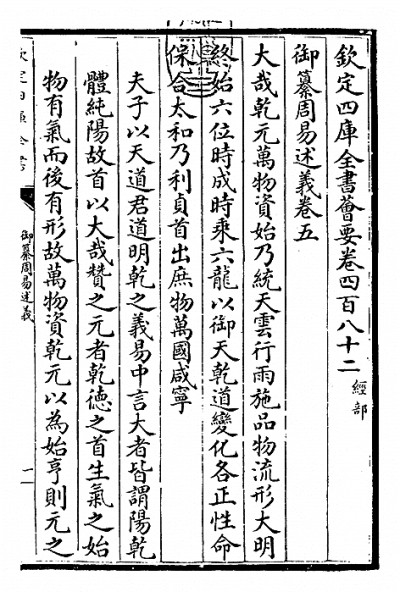 欽定四庫全書薈要卷四百八十二 經部
御纂周易述義卷五
大哉乾元萬物資始乃統天雲行雨施品物流形大明
終始六位時成時乘六龍以御天乾道變化各正性命
保合太和乃利貞首出庶物萬國咸寧
夫子以天道君道明乾之義易中言大者皆謂陽乾
體純陽故首以大哉贊之元者乾德之首生氣之始
物有氣而後有形故萬物資乾元以為始亨則元之
欽定四庫全書
御纂周易述義
一